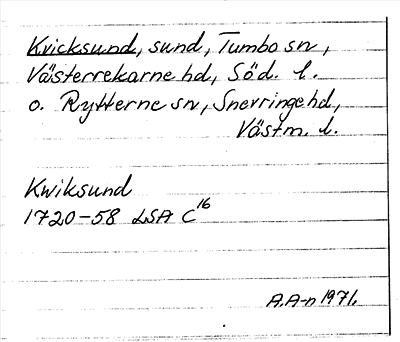 Kvicksund, sund, Tumbo sn,
Västerrekarne hd, Söd. l.
o. Rytterne sn, Snevringe hd,
Västm. l.
Kwiksund
1720-58 LSA C16
A.A-n 1971.